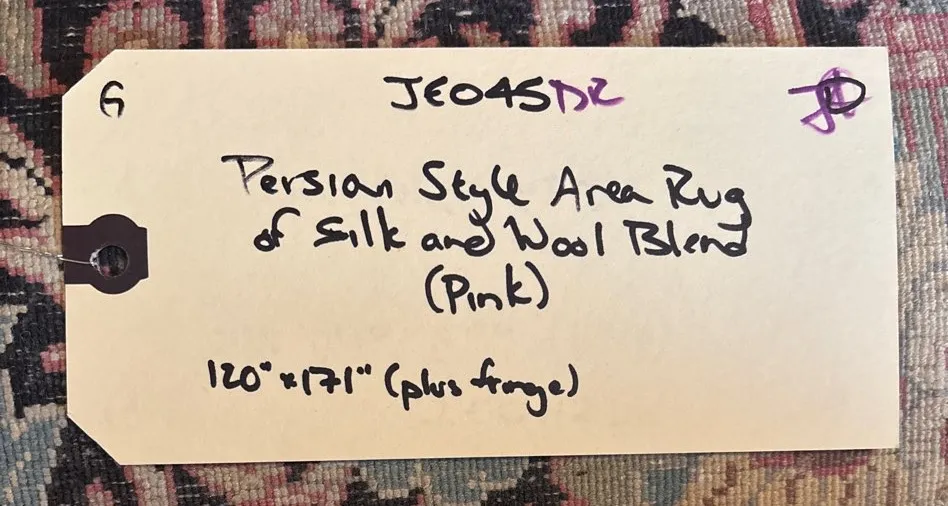 G
JE045DR
Persian Style Area Rug
of Silk and Wool Blend
(Pink)
120" x 171" (plus fringe)